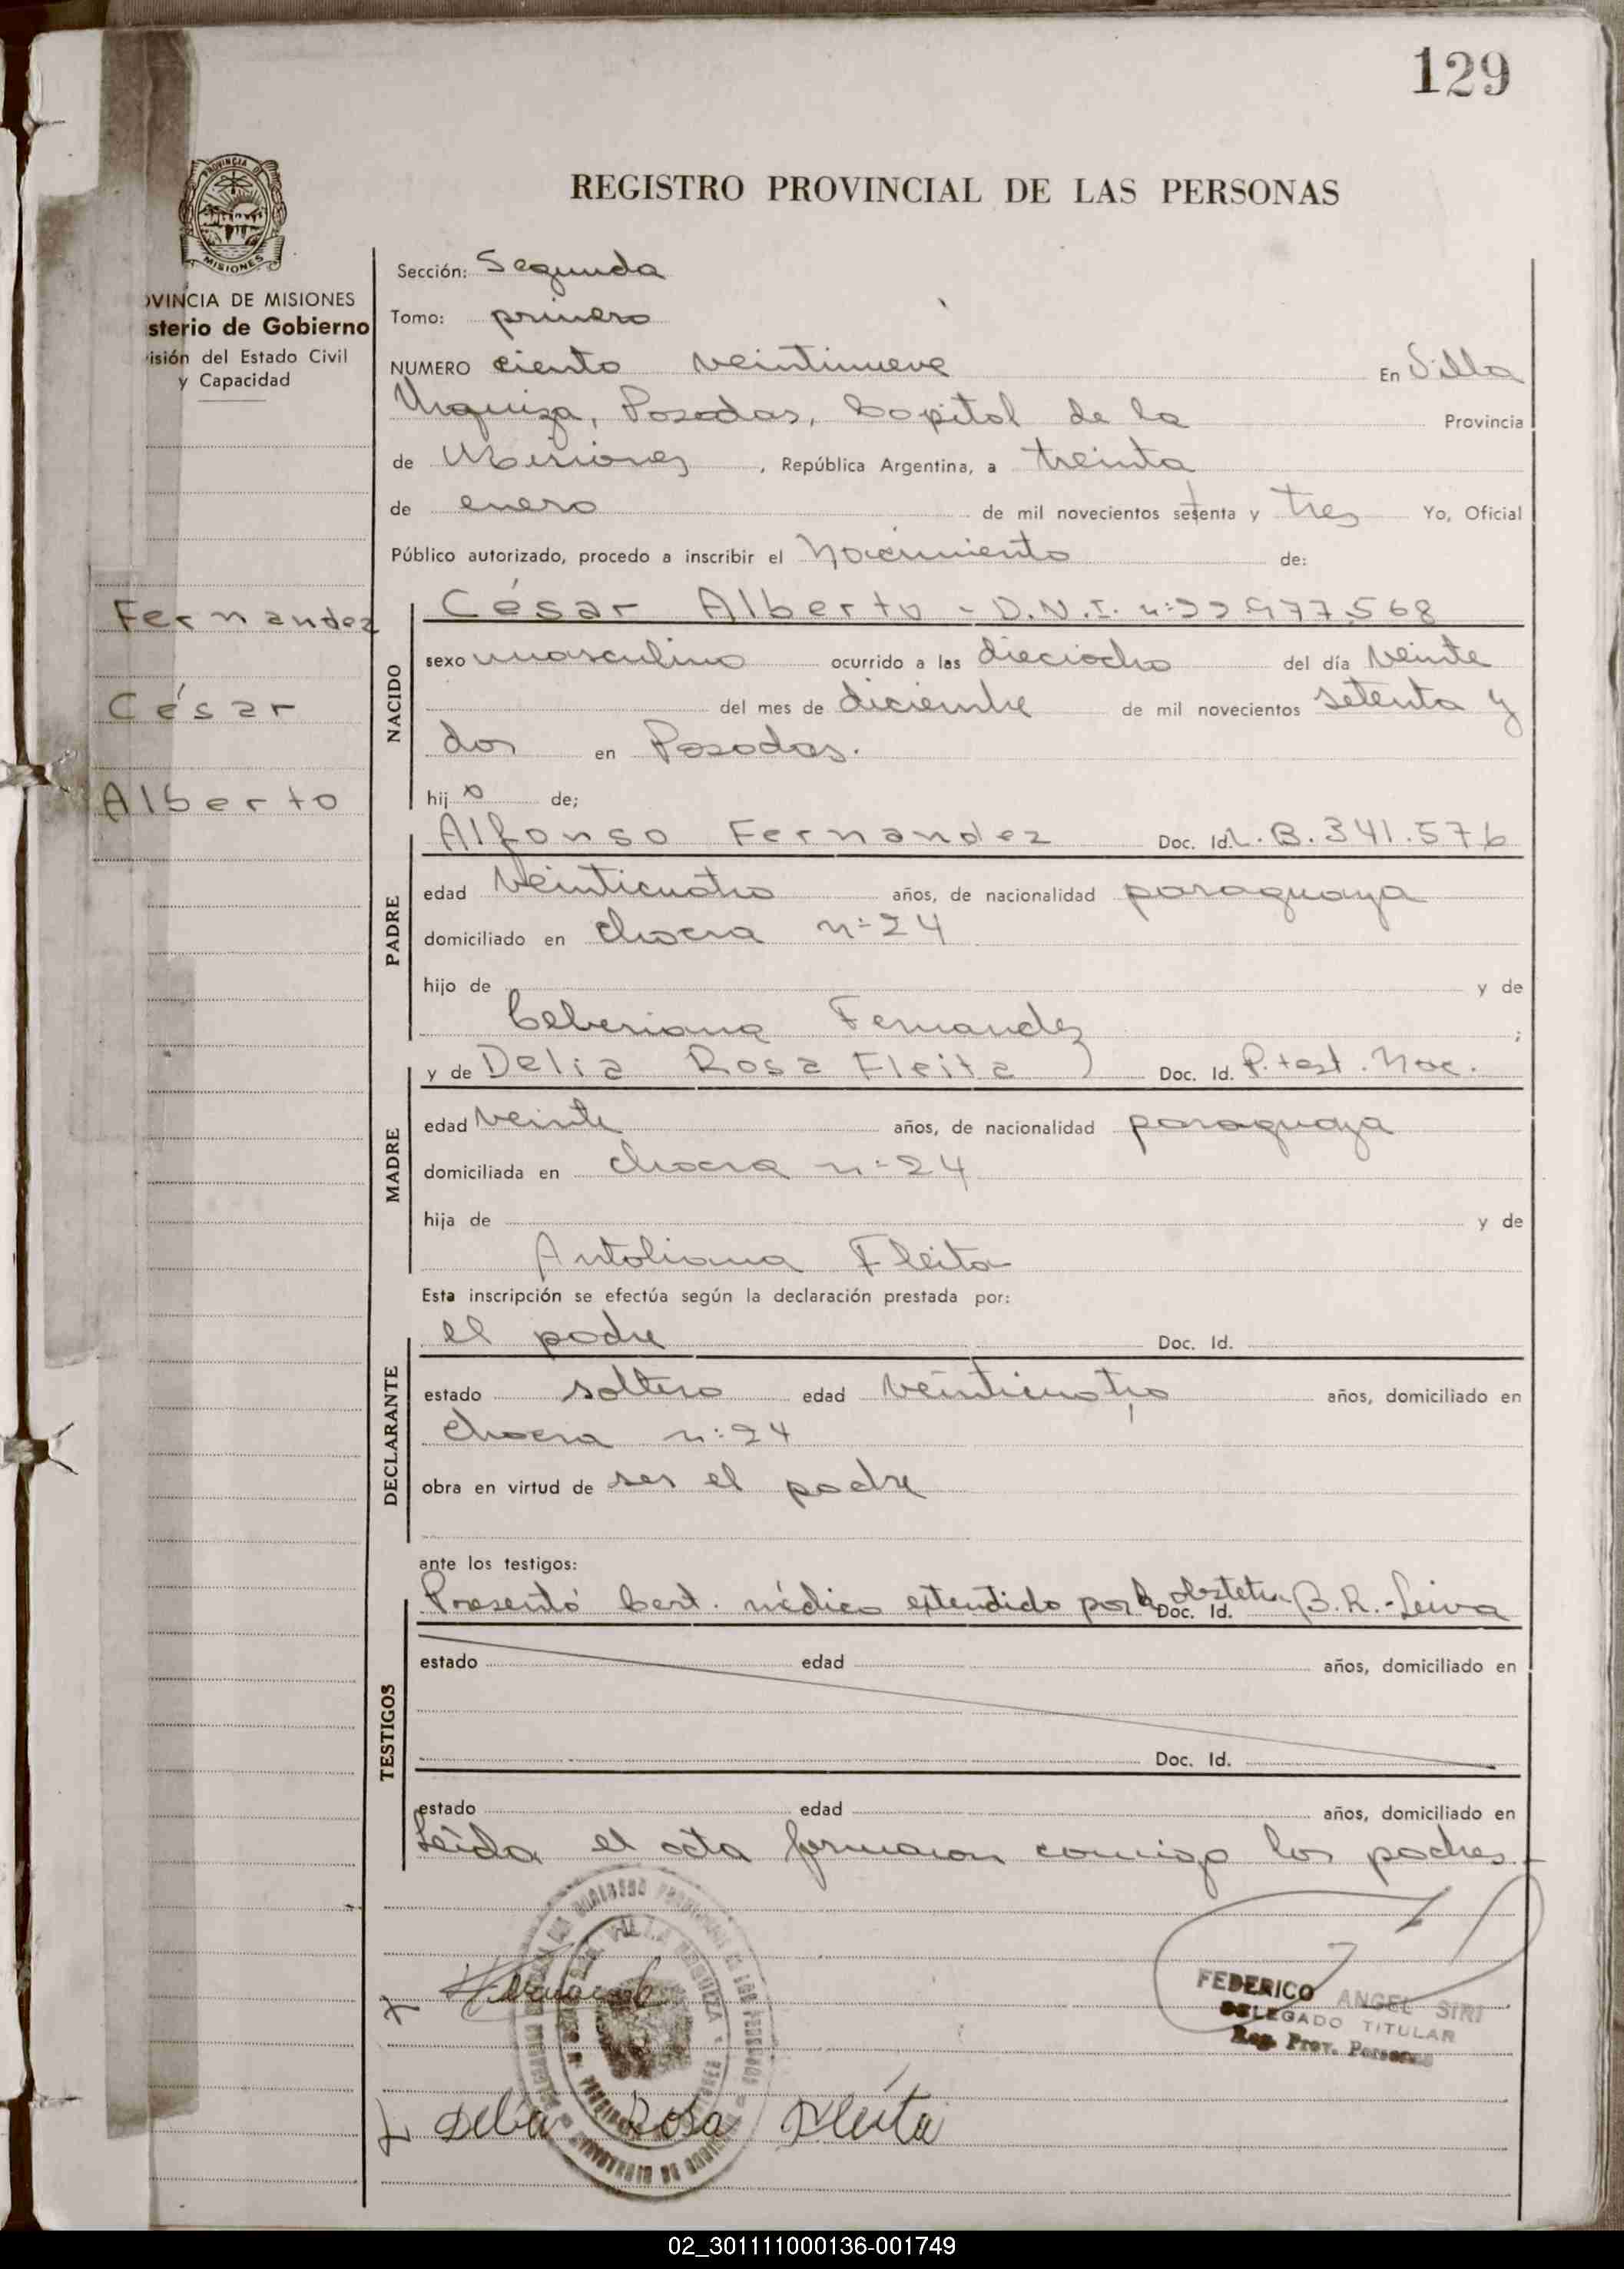 129
PROVINCIA DE
MISIONES
REGISTRO PROVINCIAL DE LAS PERSONAS
OVINCIA DE MISIONES
sterio de Gobierno
isión del Estado Civil
y Capacidad
Sección: Segunda
Tomo: primero
NUMERO ciento veintinueve En Villa
Urquiza, Posadas, Capital de la Provincia
de Misiones, República Argentina, a treinta
de enero de mil novecientos setenta y tres Yo, Oficial
Público autorizado, procedo a inscribir el Nacimiento de:
Fernandez
César
Alberto
NACIDO
César Alberto - D.N.I. n: 22.977.568
sexo masculino ocurrido a las dieciocho del día veinte
del mes de diciembre de mil novecientos setenta y
dos en Posadas.
hijo de;
PADRE
Alfonso Fernandez Doc. Id. L.B. 341.576
edad veinticuatro años, de nacionalidad paraguaya
domiciliado en chacra n: 24
hijo de y de
Celeriana Fernandez ;
MADRE
y de Delia Rosa Fleita Doc. Id. P. test. Nac.
edad veinte años, de nacionalidad paraguaya
domiciliada en chacra n: 24
hija de y de
Antoliana Fleita
Esta inscripción se efectúa según la declaración prestada por:
DECLARANTE
el padre Doc. Id.
estado soltero edad veinticuatro años, domiciliado en
chacra n: 24
obra en virtud de ser el padre
ante los testigos:
TESTIGOS
Presentó Cert. médico extendido por la obstetra B.R.-Leiva Doc. Id.
estado edad años, domiciliado en
Doc. Id.
estado edad años, domiciliado en
Leída el acta firmaron conmigo los padres.-
FEDERICO ANGEL SIRI
DELEGADO TITULAR
Reg. Prov. Personas
VILLA URQUIZA
Delia Rosa Fleita
02_301111000136-001749